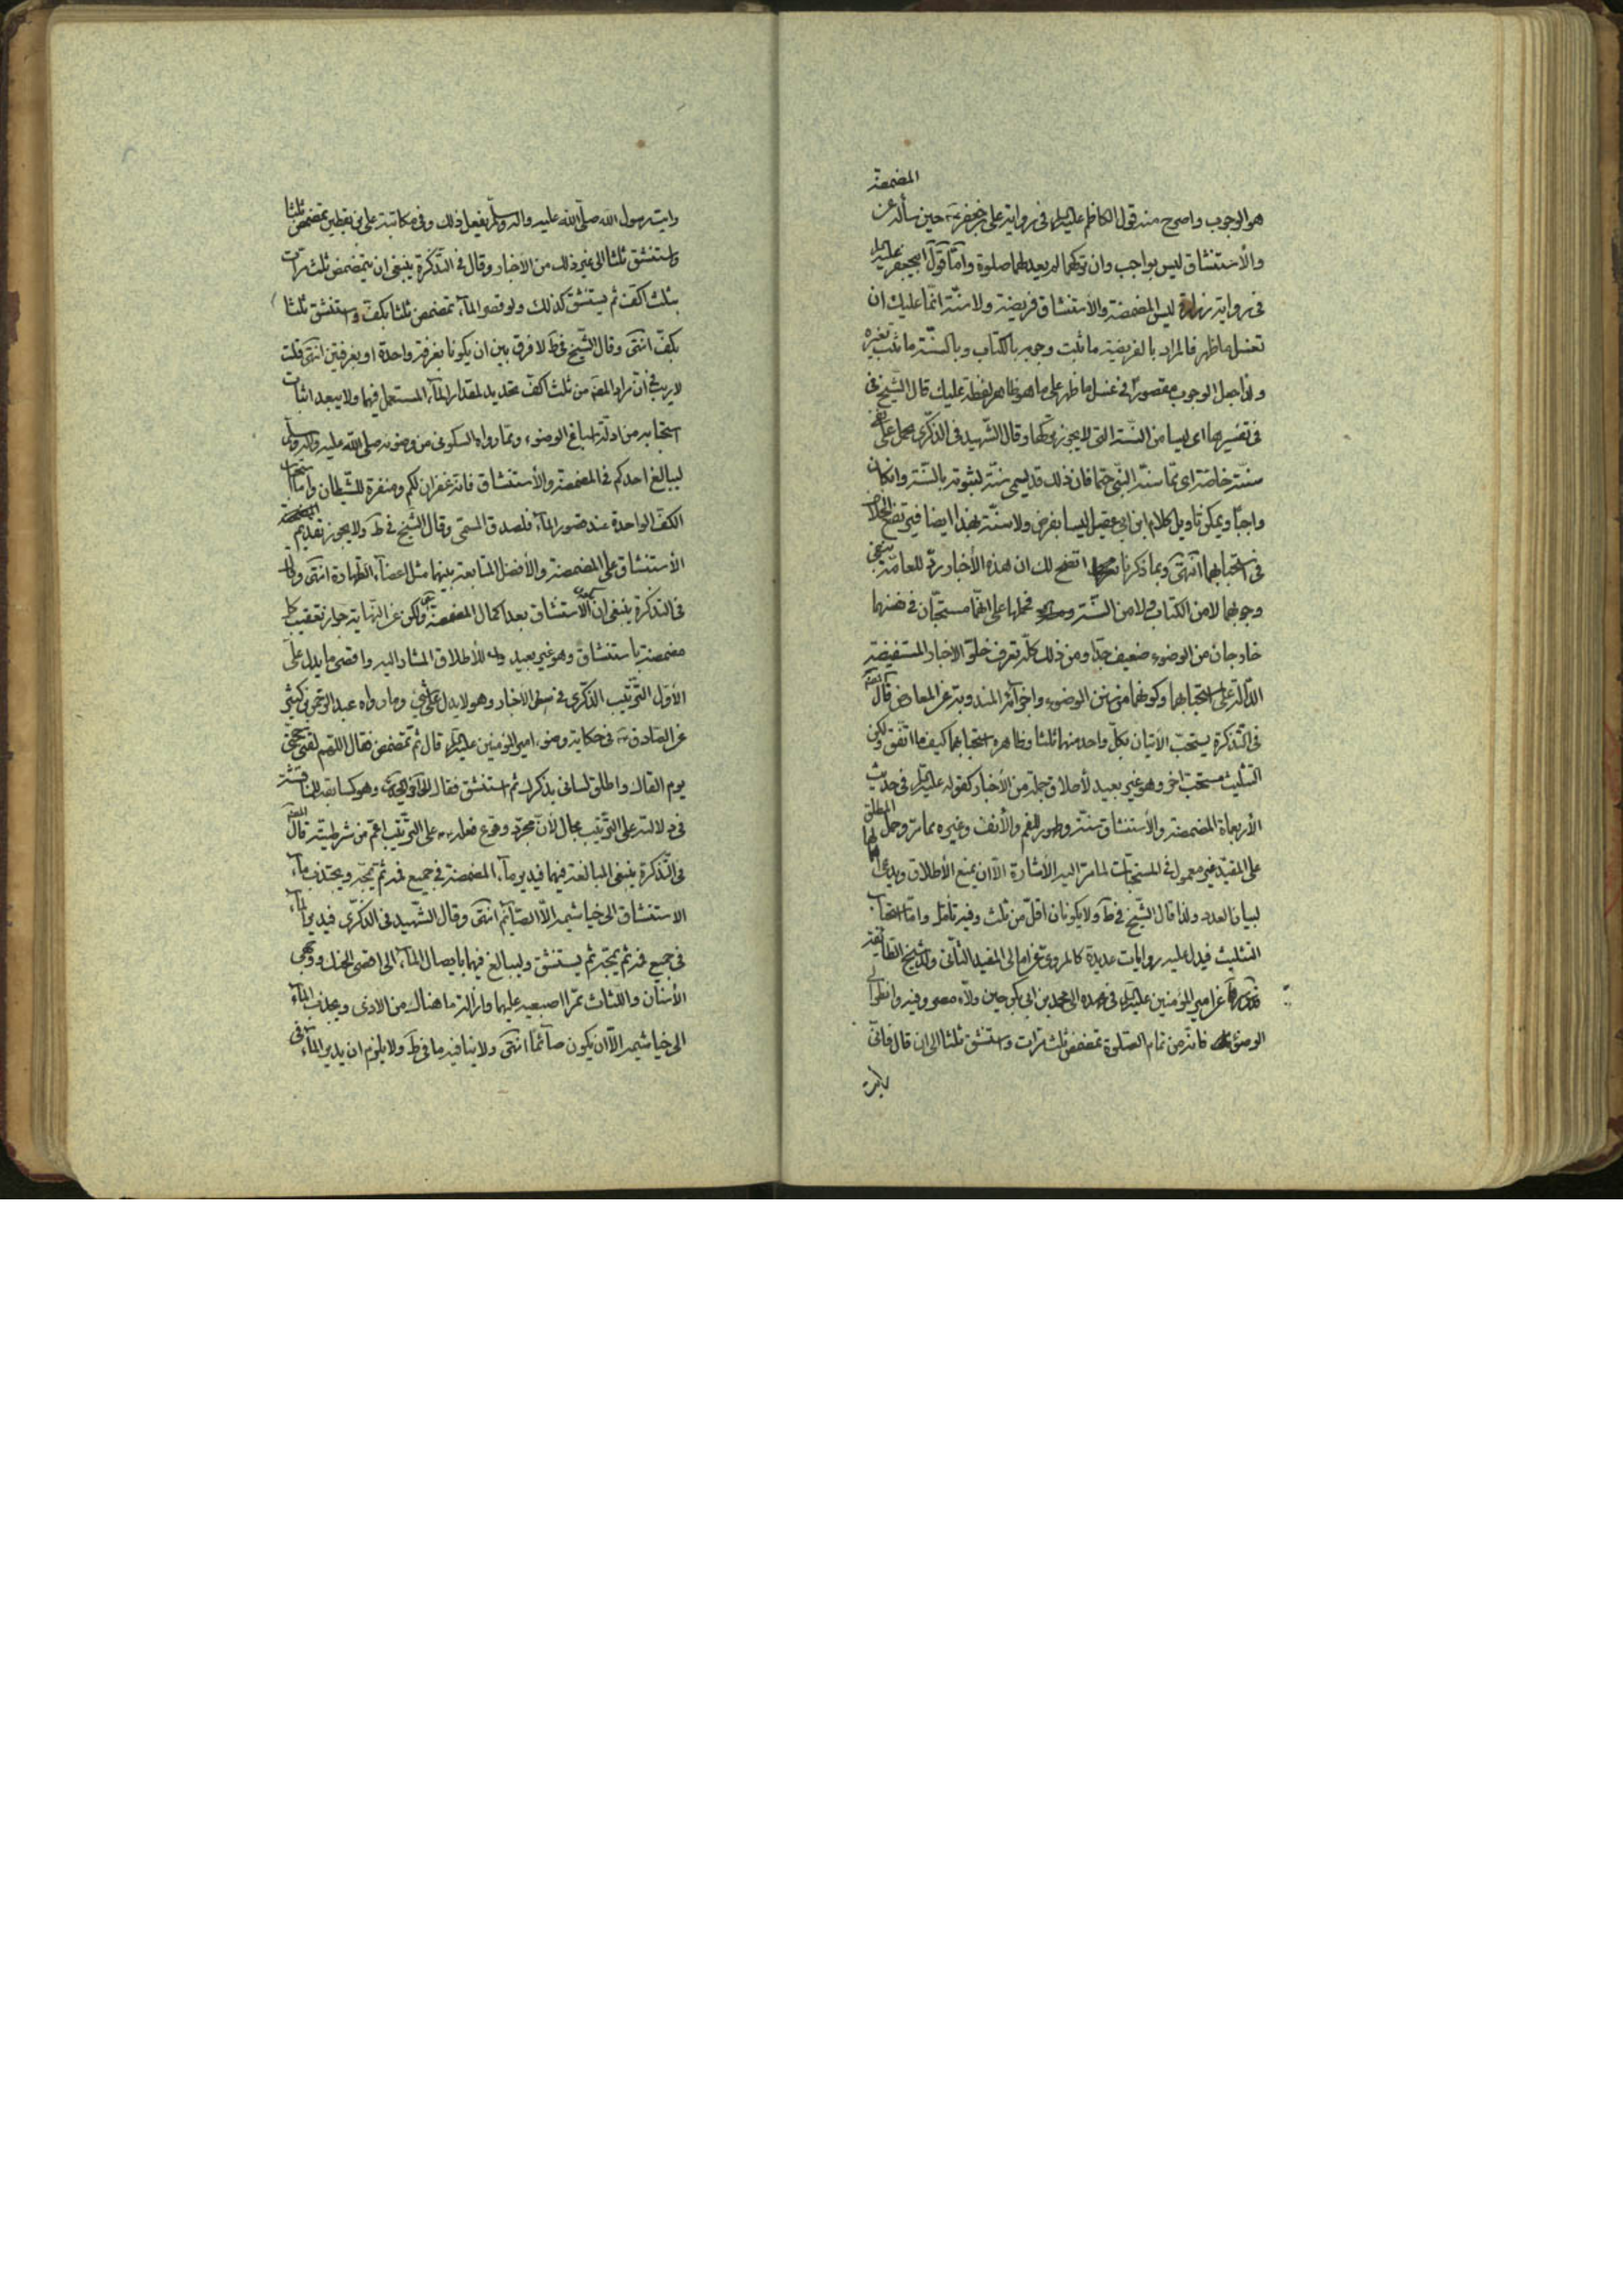 المضمضة
هو الوجوب واصرح منه قول الكاظم عليه السلم فى رواية على بن جعفر حين سأله عن
والأستنشاق ليس بواجب وان تركهما لم يعد لهما صلوة وأمّا قول ابيجعفر عليه السلم
فى رواية زرارة ليس المضمضة والأستنشاق فريضة ولا سنّة انّما عليك ان
تغسل ما ظهر فالمراد بالفريضة ما ثبت وجوبه بالكتاب وبالسنّة ما ثبت بغيره
ولذا جعل الوجوب مقصورا فى غسل ما ظهر على ما هو ظاهر لفظة عليك قال الشّيخ فى
فى تفسيرها اى ليسا من السّنة التى لا يجوز تركها وقال الشّهيد فى الذّكرى محمل على نفى
سنّة خاصّة اى ممّا سنّه النّبى حتما فان ذلك قد يسمى سنّة لثبوته بالسّنة وانكان
واجبًا ويمكن تأويل كلام ابن ابى عقيل ليسا بفرض ولا سنّة بهذا ايضا فيرتفع الخلاف
فى استحبابهما انتهى وبما ذكرنا اتضح لك ان هذه الأخبار ردّ للعامّة ينفى
وجوبهما لا من الكتاب ولا من السّنة فحملها على انهّما مستحبّان فى نفسهما
خارجان من الوضوء ضعيف جدّا ومن ذلك كلّه تعرف خلوّ الاخبار المستفيضة
الدّالة على استحبابهما وكونهما من سنن الوضوء واجزائه المندوبة عن المعارض قال المصنّف
فى التّذكرة يستحبّ الأتيان بكلّ واحد منهما ثلثا وظاهره استحبابهما كيف ما اتفق ولكن
التثليث مستحب اخر وهو غير بعيد لأطلاق جملة من الأخبار كقوله عليه السلم فى حديث
الأربعمائة المضمضة والأستنشاق سنّة وطهور للفم والأنف وغيره مما مرّ وحمل المطلق
على المقيد غير معمول فى المستحبّات لما مرّ اليه الأشارة الّا ان يمنع الأطلاق ويدعى
لبيان العدد ولذا قال الشّيخ فى ط ولا يكونان اقلّ من ثلث وفيه تأمّل وامّا استحباب
التثليث فيدل عليه روايات عديدة كالمروى عن امالى المفيد الثّانى ولد شيخ الطّائفة
عن امير المؤمنين عليه السلم فى عهده الى محمد بن ابى بكر حين ولّاه مصر وفيه وانظر الى
الوضوء فانّه من تمام الصّلوة تمضمض ثلث مرّات واستنشق ثلثا الى ان قال فانّى
رايت
رايت رسول اللّه صلّى اللّه عليه واله وسلّم يفعل ذلك وفى مكاتبة على بن يقطين تمضمض ثلثا
واستنشق ثلثا الى غير ذلك من الأخبار وقال فى التّذكرة ينبغى ان يتمضمض ثلث مرّات
بثلث اكفّ ثم يستنشق كذلك ولو قصر الماء تمضمض ثلثا بكفّ واستنشق ثلثا
بكفّ انتهى وقال الشّيخ فى ط لا فرق بين ان يكونا بغرفة واحدة او بغرفتين انتهى قلت
لا ريب فى انّ مراد المصّ من ثلث اكفّ تحديد لمقدار الماء المستعمل فيهما ولا يبعد اثبات
استحبابه من ادلّة اسباغ الوضوء وممّا رواه السكونى من وضوءه صلى اللّه عليه واله وسلّم
ليبالغ احدكم فى المضمضة والأستنشاق فانّه غفران لكم ومنفرة للشّيطان وامّا استحباب
الكفّ الواحدة عند قصور الماء فلصدق المسمّى وقال الشّيخ فى ط ولا يجوز تقديم
الأستنشاق على المضمضة والأفضل المتابعة بينهما مثل اعضاء الطّهارة انتهى
فى التذكرة ينبغى ان الأستنشاق بعد اكمال المضمضة ولكن عن النّهاية جواز تعقيب كل
مضمضة باستنشاق وهو غير بعيد للأطلاق المشار اليه واقصى ما يدل على
الأوّل التّرتيب الذّكرى فى بعض الأخبار وهو لا يدل على شئ وما رواه عبد الرّحمن بن كثير
عن الصّادق فى حكاية وضوء امير المؤمنين عليه السلم قال ثمّ تمضمض فقال اللّهم لقّنى حجّتى
يوم القاك واطلق لسانى بذكرك ثم استنشق فقال وهو كسابقه للمناقشة
فى دلالته على التّرتيب مجال لأنّ مجرّد وقوع فعله على التّرتيب اعم من شرطيته قال المصنّف
فى التّذكرة ينبغى المبالغة فيهما فيدير ماء المضمضة فى جميع فمه ثم يمجّه ويجتذب ماء
الاستنشاق الى خياشيمه الّا الصّائم انتهى وقال الشّهيد فى الذّكرى فيدير الماء
فى جميع فمه ثم يمجّه ثم يستنشق وليبالغ فيهما بايصال الماء الى اقصى الحنك ووجهى
الأسنان واللثات ممرّا اصبعيه عليهما وازالة ما هنالك من الاذى ويجذب الماء
الى خياشيمه الّا ان يكون صائمًا انتهى ولا ينافيه ما فى ط ولا يلزم ان يدير الماء فى